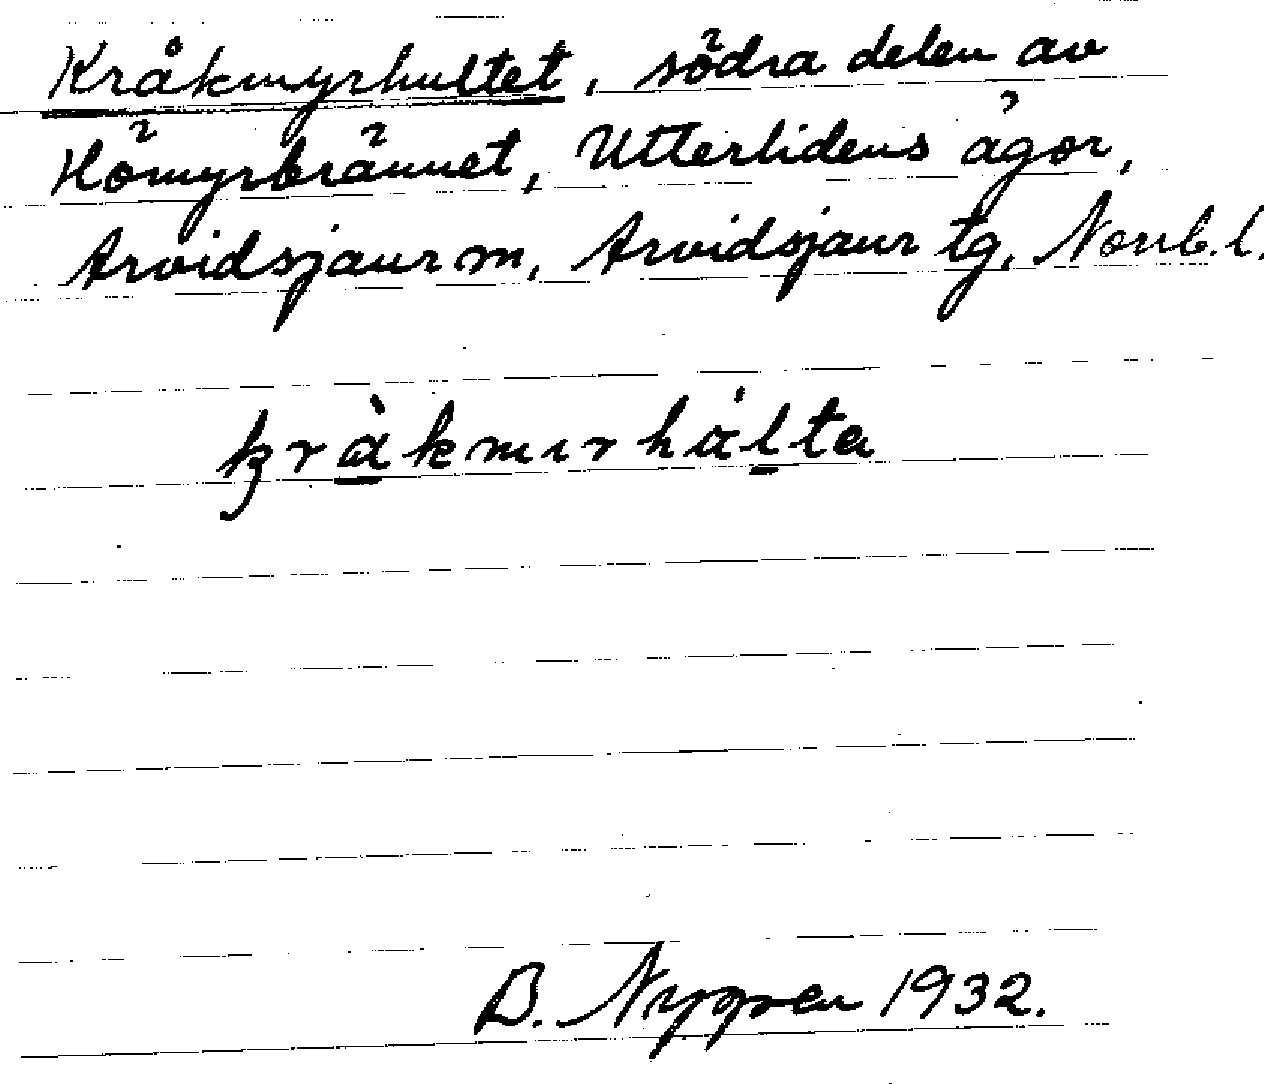 Kråkmyrhultet, södra delen av
Hömyrbrännet, Utterlidens ägor,
Arvidsjaur m, Arvidsjaur tg, Norrb. l.
kråkmırhålta
B. Nygren 1932.